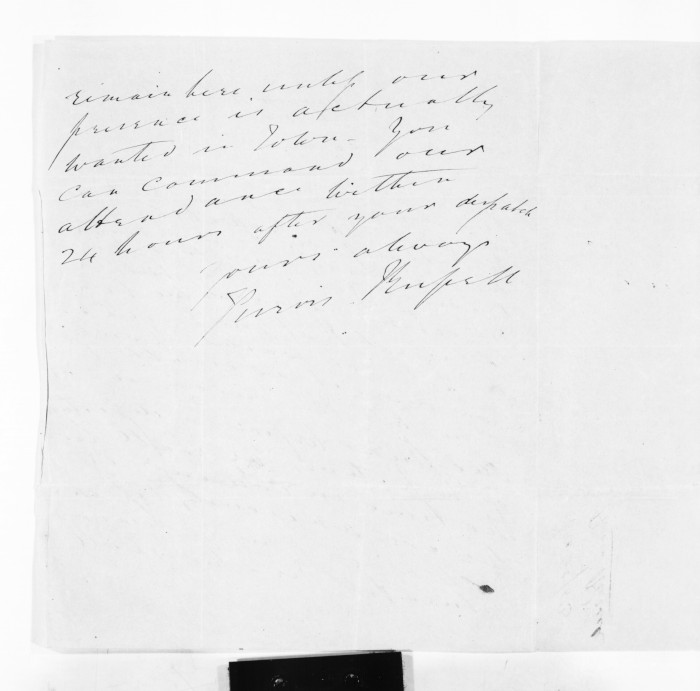 remain here unless our
presence is actually
wanted in Town. You
can command our
attendance within
24 hours after your despatch
yours always
Purvis Russell